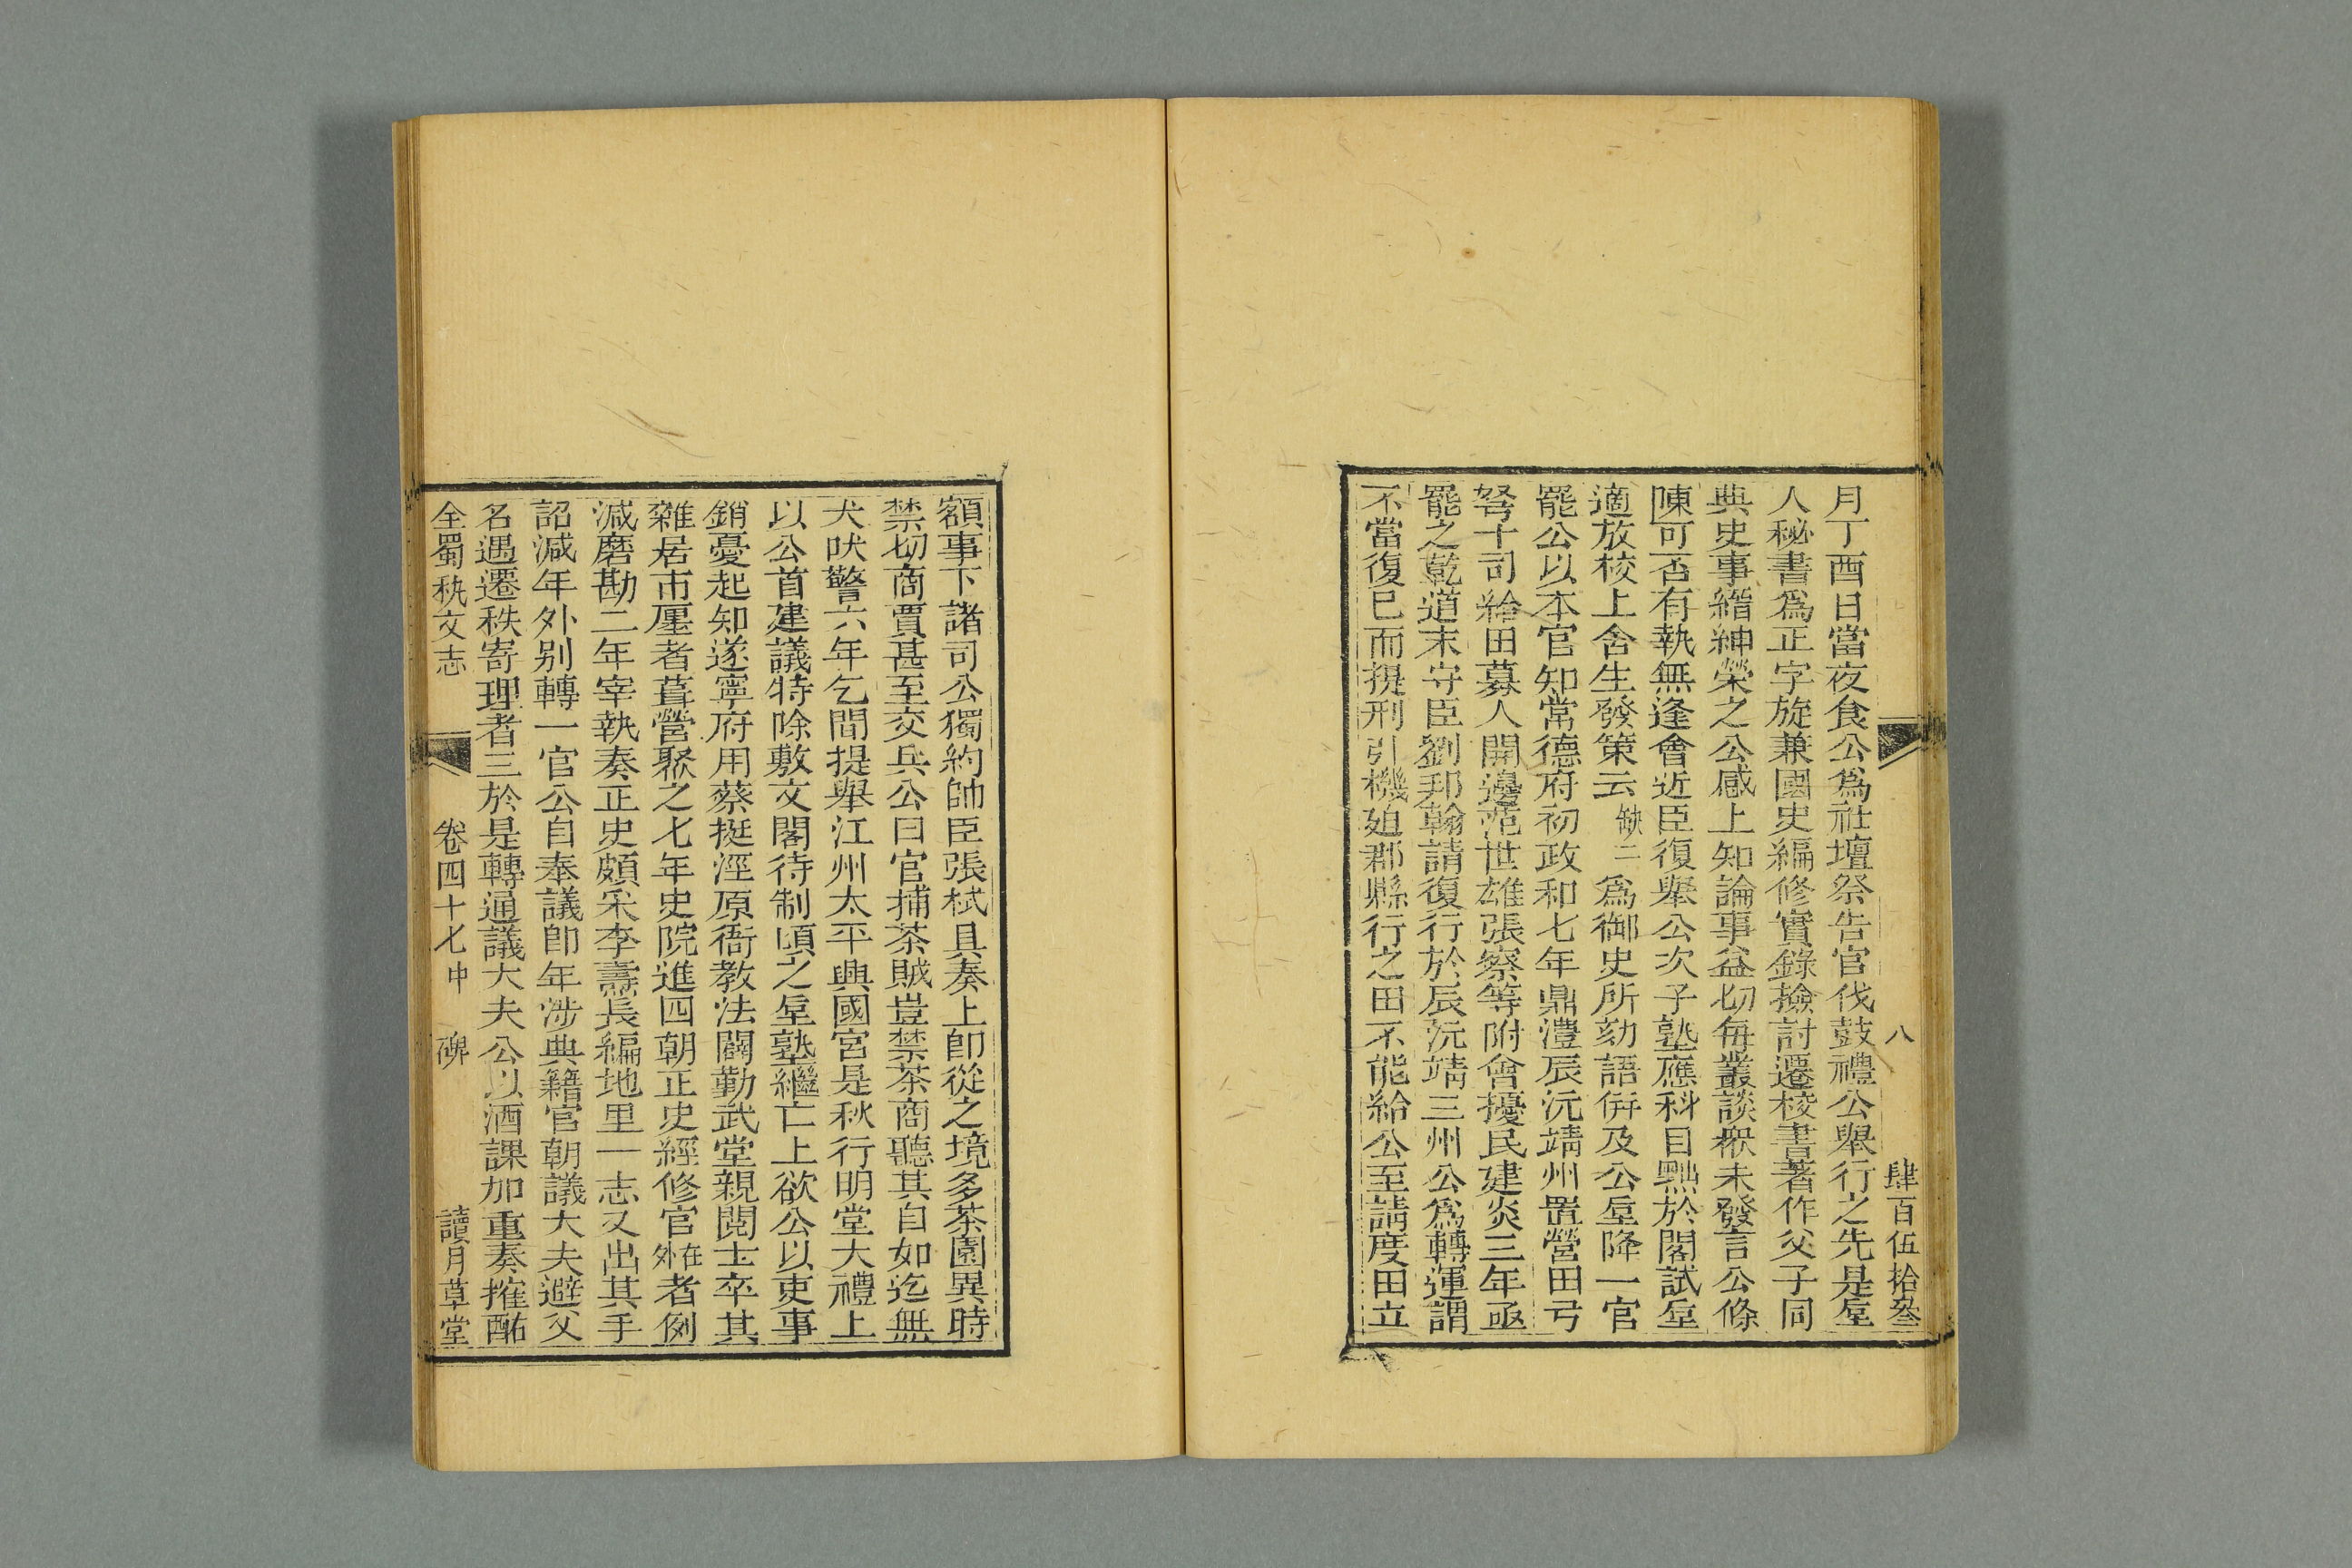 八 肆百伍拾叄
月丁酉日當夜食公爲社壇祭告官伐鼓禮公舉行之先是垕
人秘書爲正字旋兼國史編修實錄撿討遷校書著作父子同
典史事縉紳榮之公感上知論事益切每叢談衆未發言公條
陳可否有執無逢會近臣復舉公次子塾應科目黜於閣試垕
適放校上舍生發策云缺二爲御史所劾語併及公垕降一官
罷公以本官知常德府初政和七年鼎澧辰沅靖州置營田弓
弩十司給田募人開邊范世雄張察等附會擾民建炎三年亟
罷之乾道末守臣劉邦翰請復行於辰沅靖三州公爲轉運謂
不當復已而提刑引機廹郡縣行之田不能給公至請度田立
額事下諸司公獨約帥臣張栻具奏上卽從之境多茶園異時
禁切商賈甚至交兵公曰官捕茶賊豈禁茶商聽其自如迄無
犬吠警六年乞閒提舉江州太平興國宮是秋行明堂大禮上
以公首建議特除敷文閣待制頃之垕塾繼亡上欲公以吏事
銷憂起知遂寧府用蔡挺涇原衙教法闢勤武堂親閱士卒其
雜居市廛者葺營聚之七年史院進四朝正史經修官在外者例
減磨勘二年宰執奏正史頗采李燾長編地里一志又出其手
詔減年外别轉一官公自奉議郎年涉典籍官朝議大夫避父
名遇遷秩寄理者三於是轉通議大夫公以酒課加重奏搉酤
全蜀秇文志 卷四十七中 碑 讀月草堂